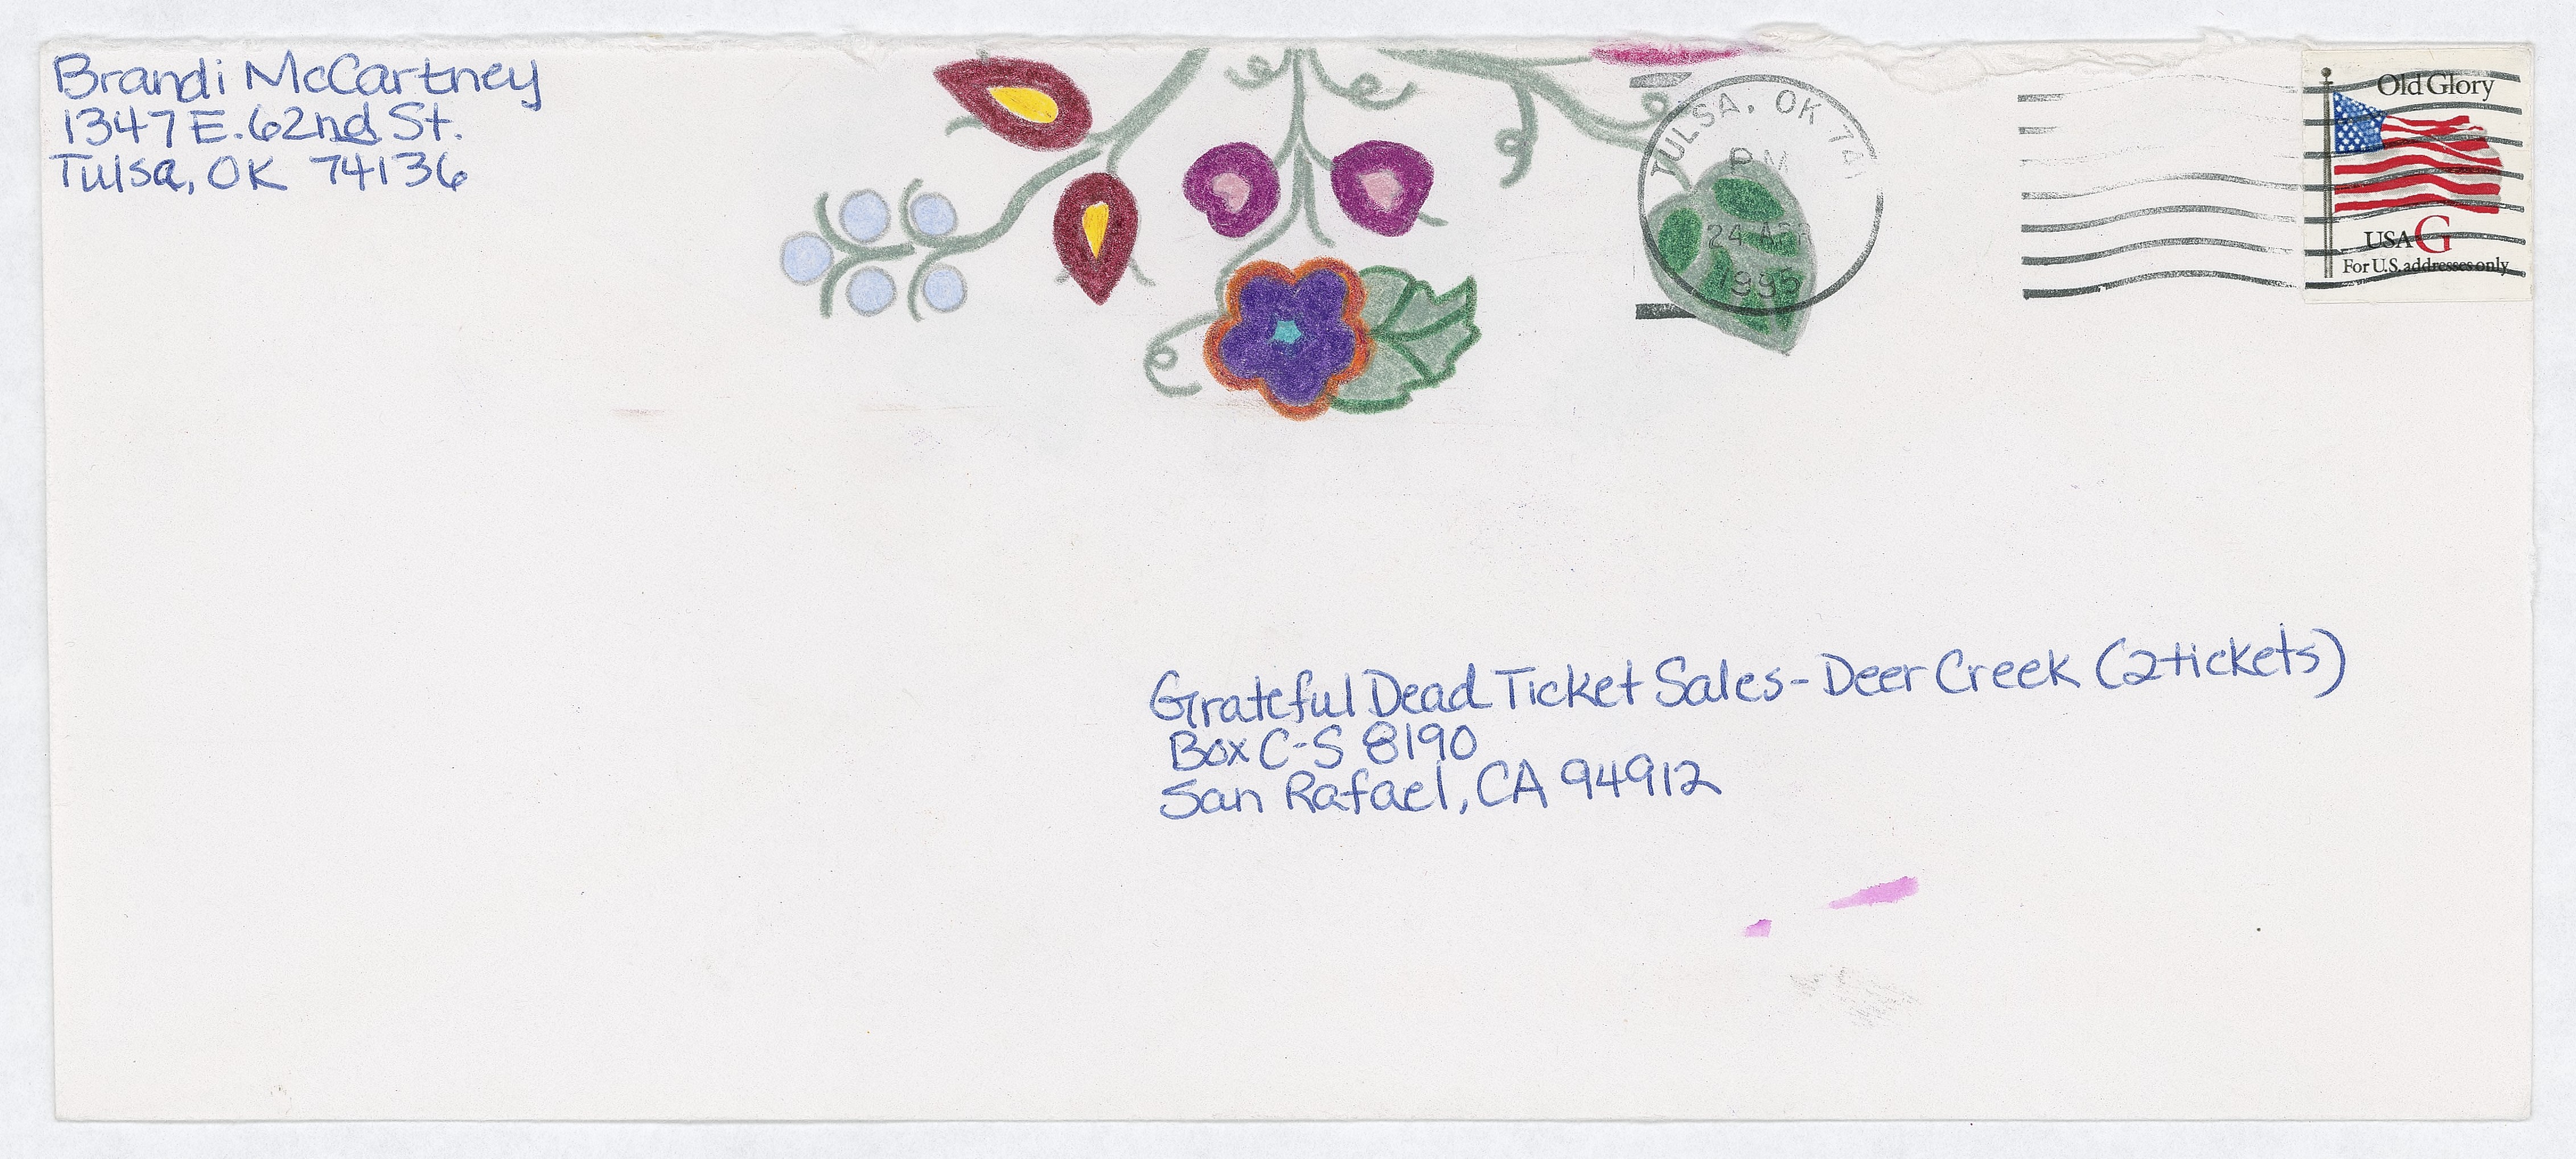 Brandi McCartney
1347 E. 62nd St.
Tulsa, OK 74136
TULSA, OK 741
PM
24 APR
1995
Old Glory
USA G
For U.S. addresses only
Grateful Dead Ticket Sales - Deer Creek (2 tickets)
Box C-S 8190
San Rafael, CA 94912